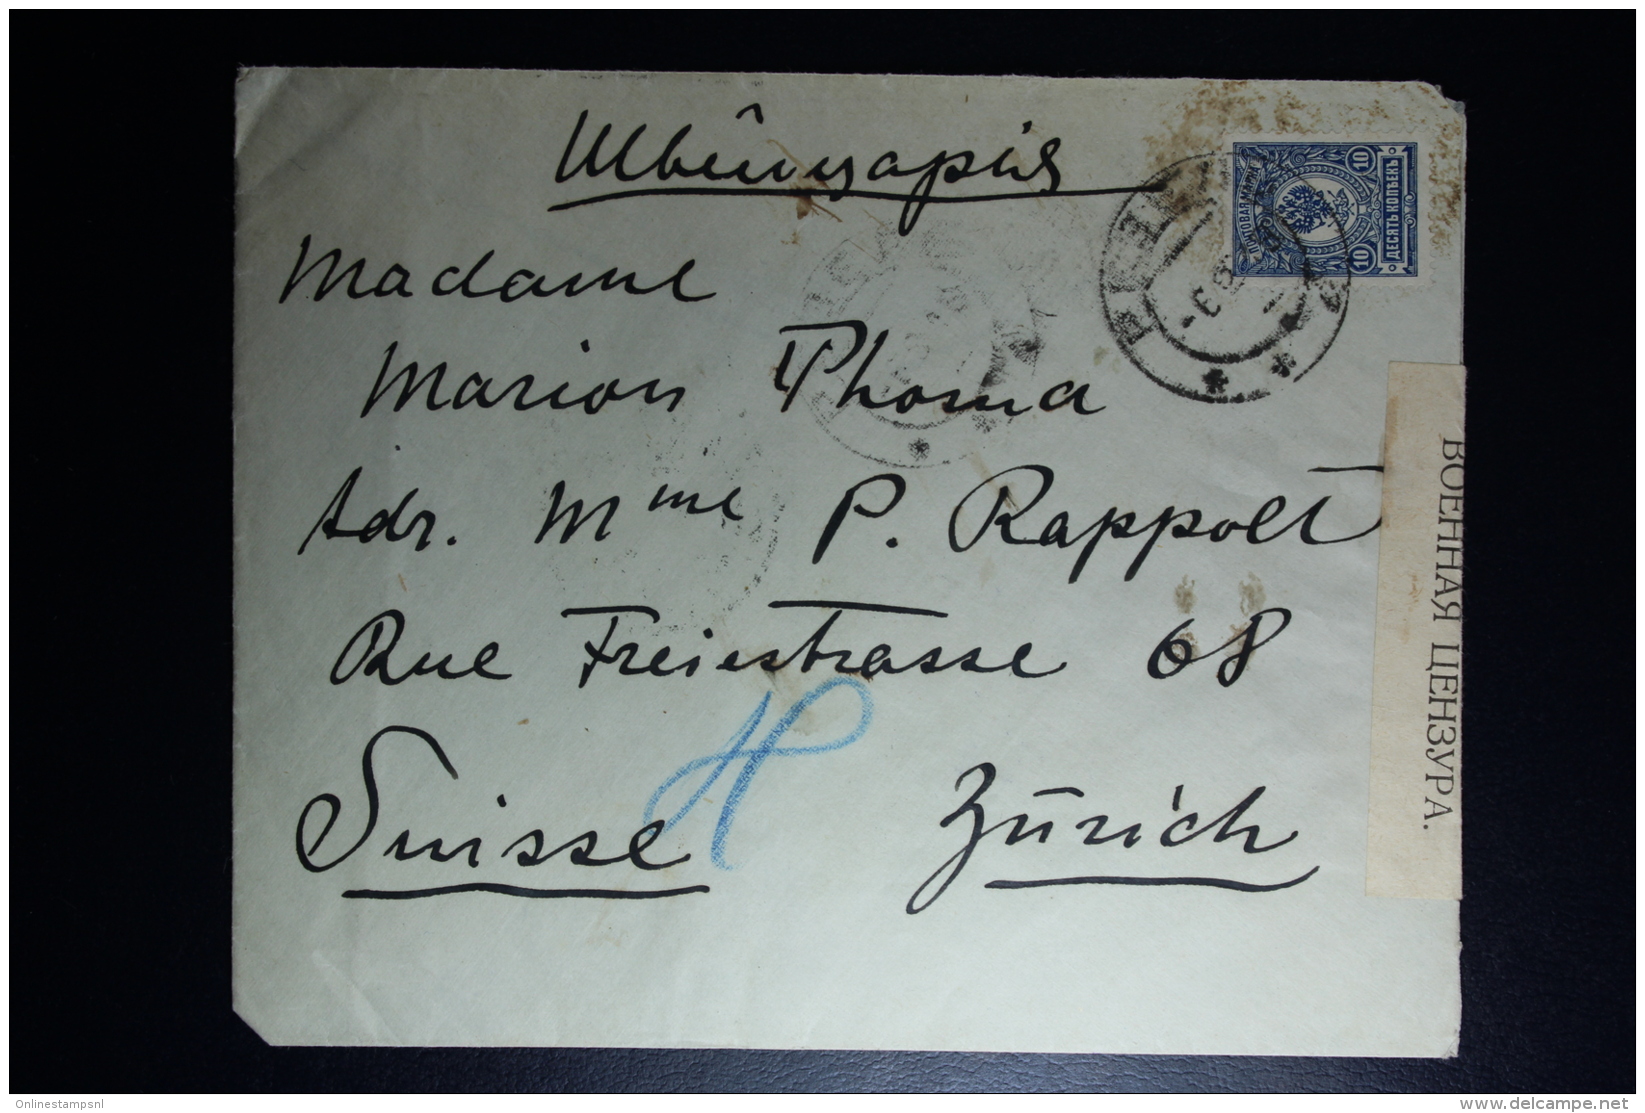 Швейцарія
Madame
Marion Thoma
Adr. Mme P. Rappolt
Rue Freiestrasse 68
Suisse Zürich
ПОЧТОВАЯ МАРКА
10 10
ДЕСЯТЬ КОПѢЕКЪ
ВОЕННАЯ ЦЕНЗУРА.
Onlinestampsnl
www.delcampe.net